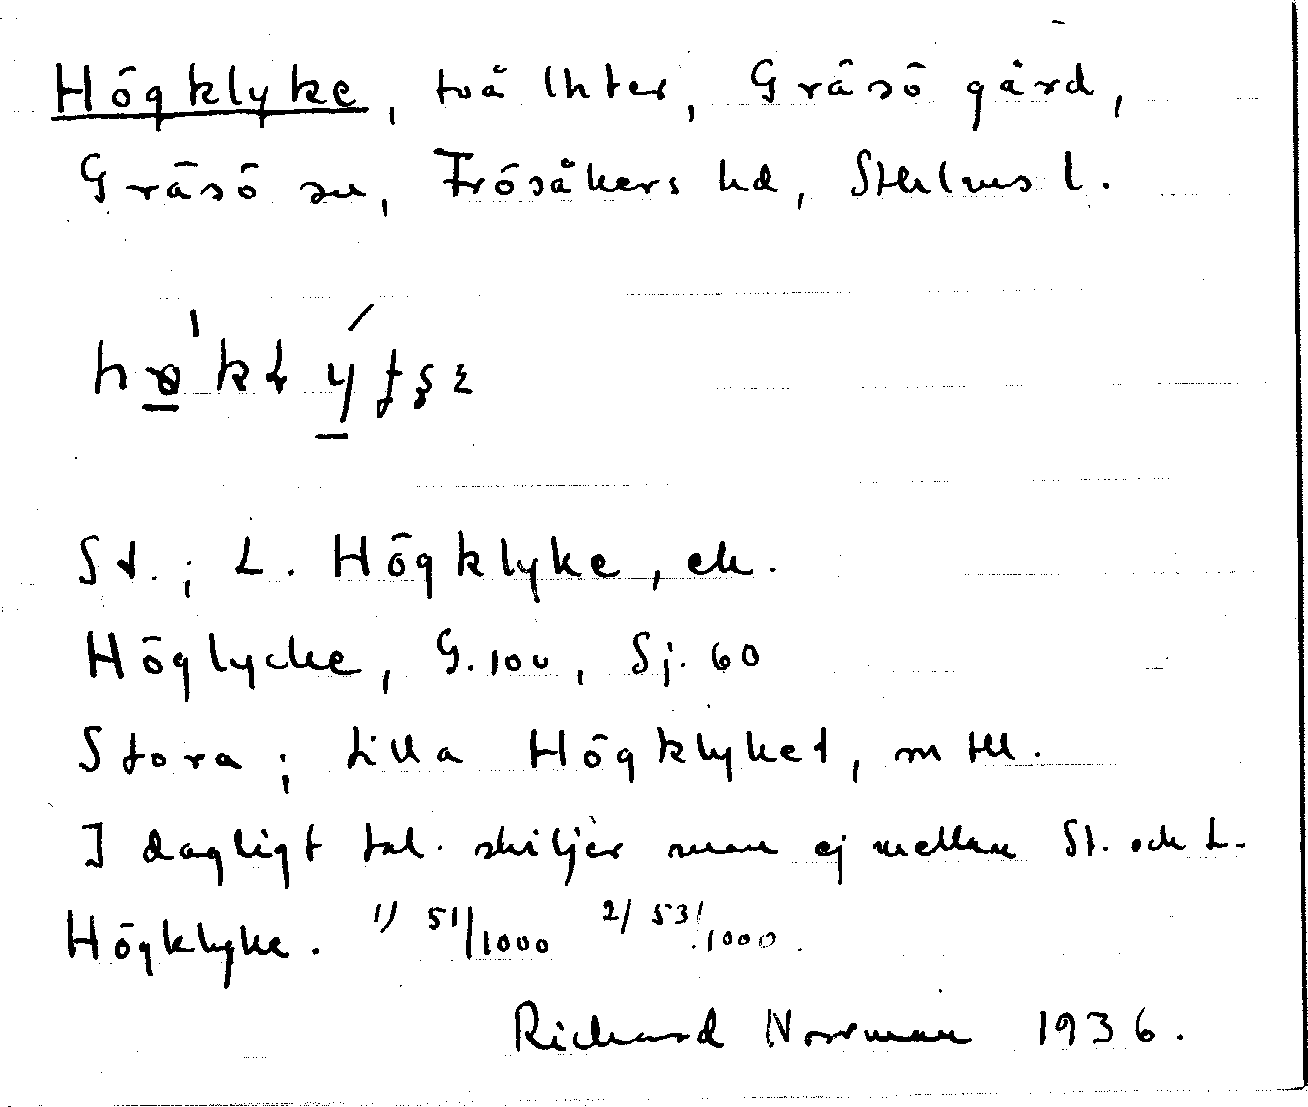 Högklyke, två lhter, Gräsö gård,
Gräsö sn, Frösåkers hd, Sthlms l.
St.; L. Högklyke, ek.
Höglycke, G. 100, Sj. 60
Stora; Lilla Högklyket, mtll.
I dagligt tal skiljer man ej mellan St. och L.
Högklyke. 1) 51/1000 2/ 53/1000.
Richard Norrman 1936.